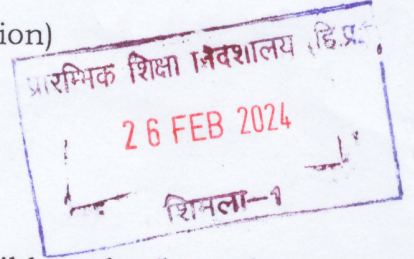 ion)
प्रारम्भिक शिक्षा निदेशालय (हि.प्र.)
26 FEB 2024
शिमला-1